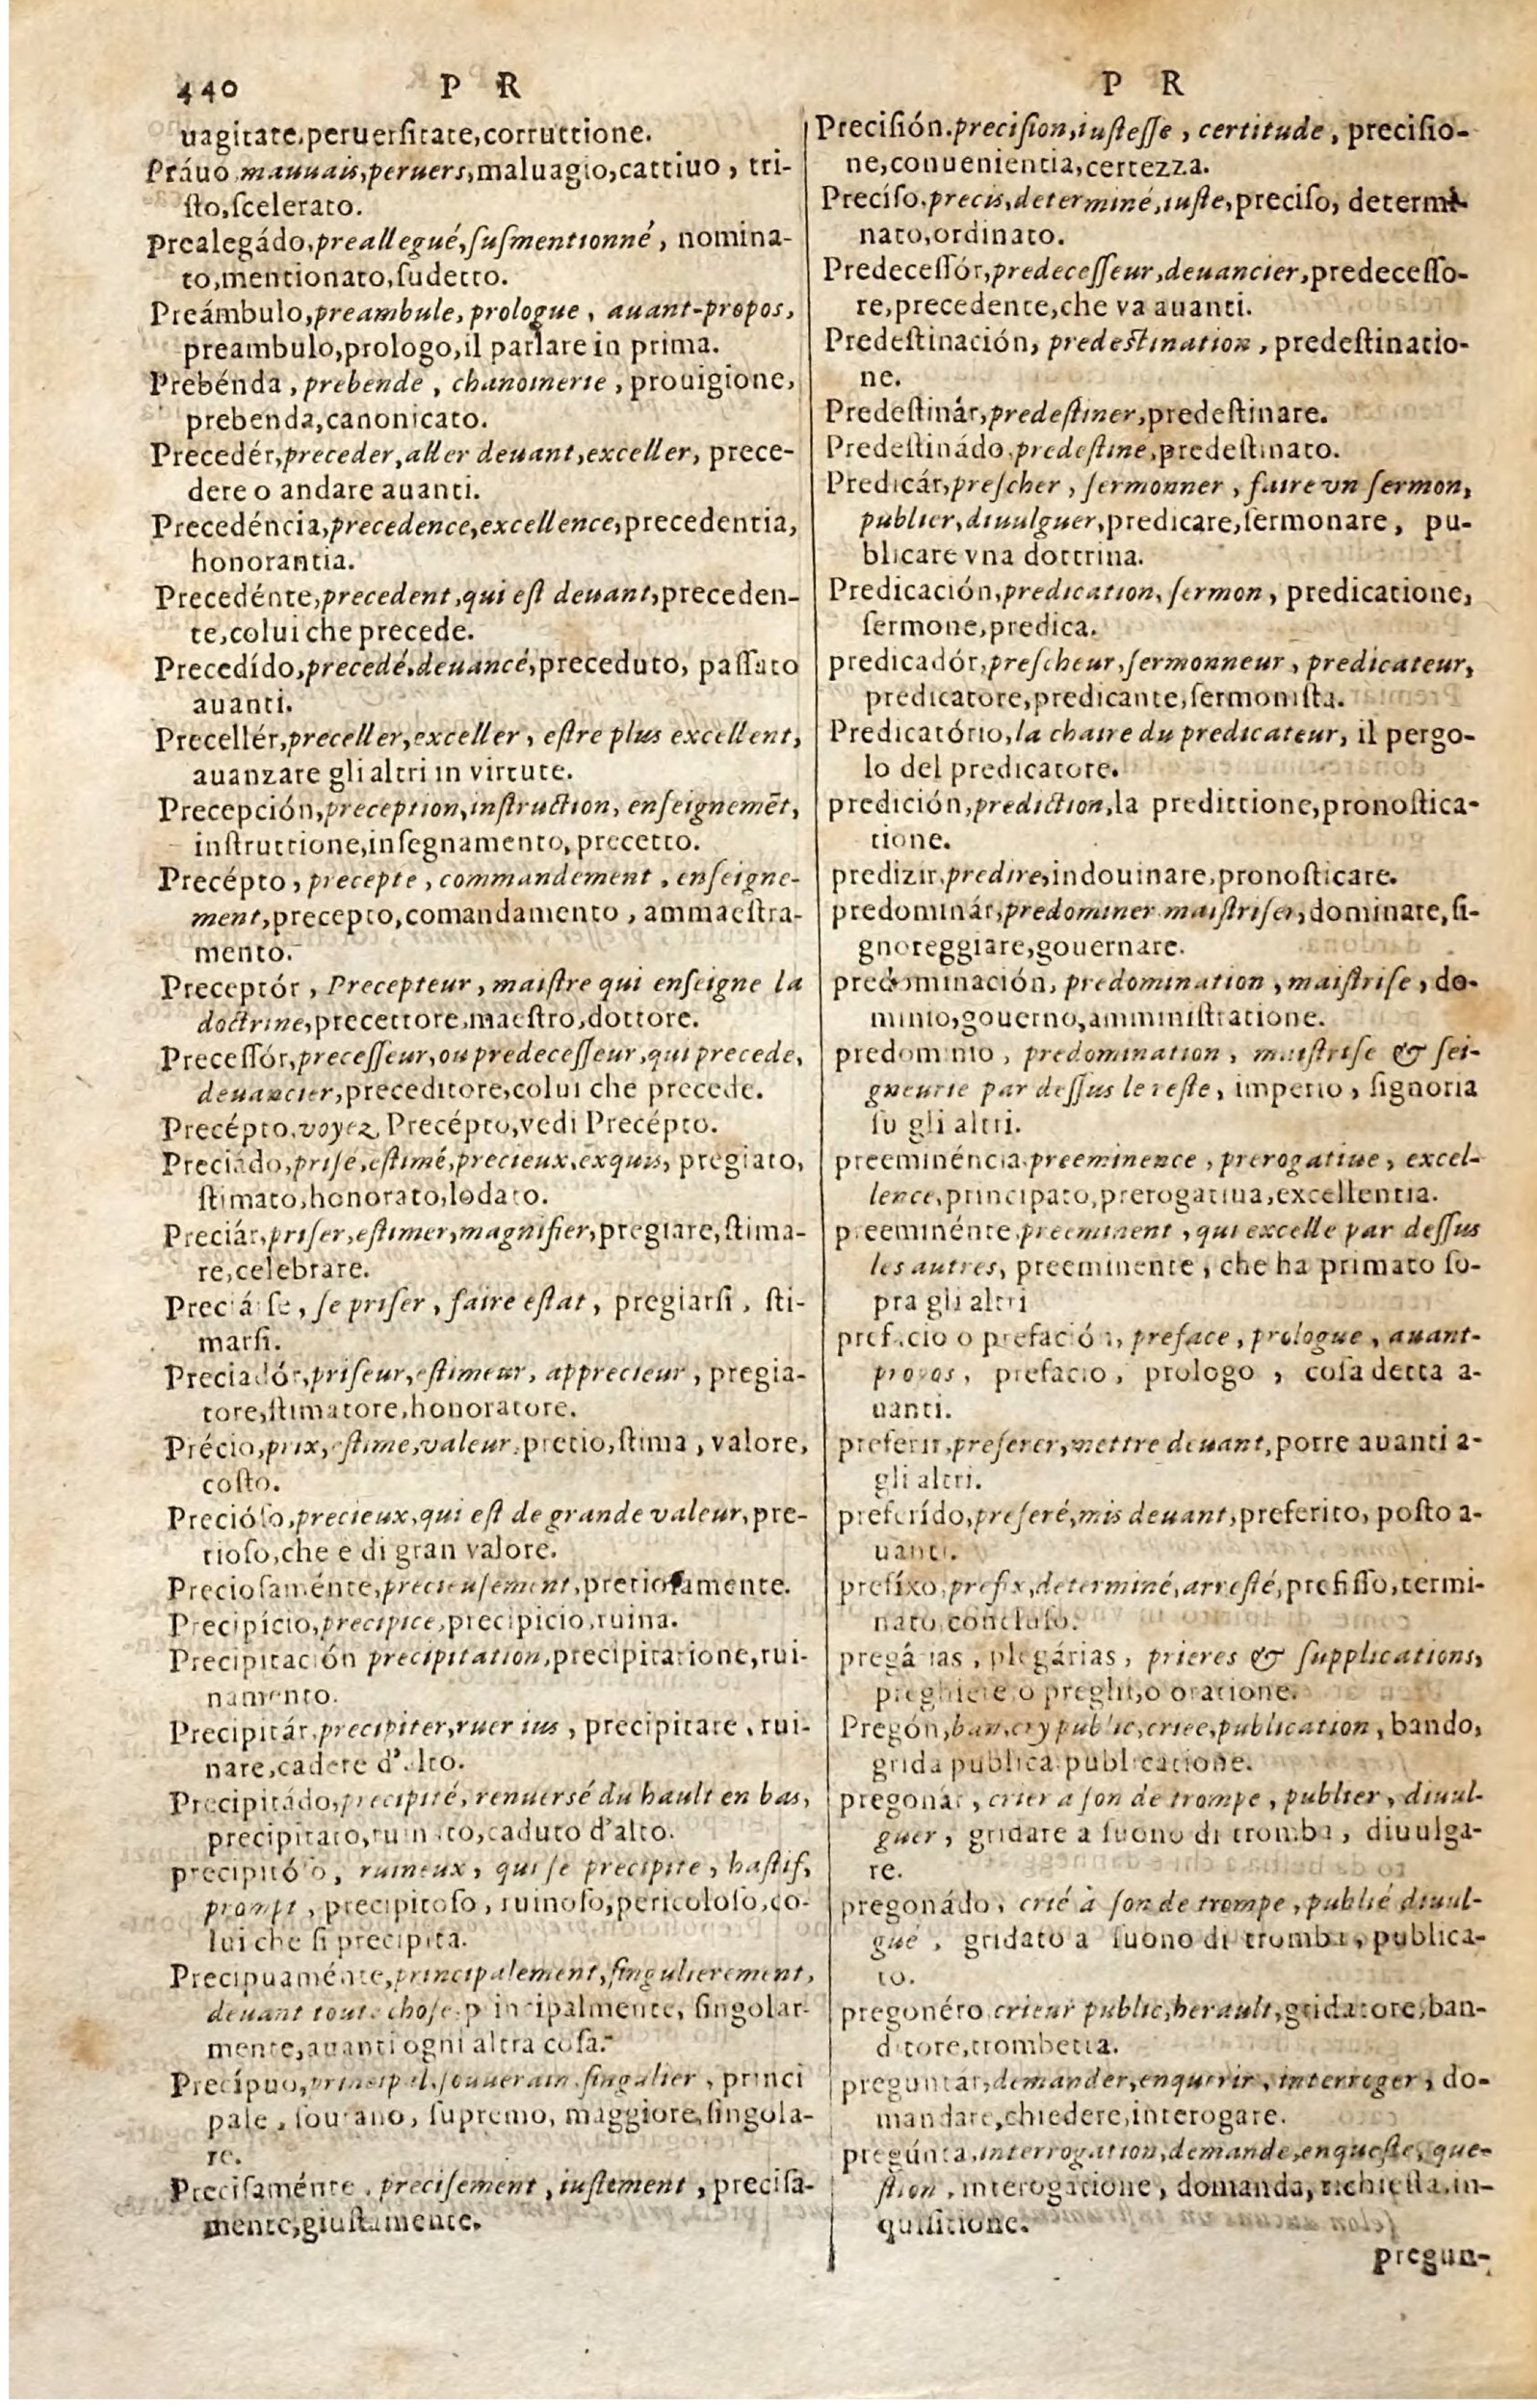 440 P R
uagitate,peruersitate,corruttione.
Práuo,mauuais,peruers,maluagio,cattiuo, tri-
sto,scelerato.
Prealegádo,preallegué,susmentionné, nomina-
to,mentionato,sudetto.
Preámbulo,preambule,prologue, auant-propos,
preambulo,prologo,il parlare in prima.
Prebénda, prebende, chanoinerie, prouigione,
prebenda,canonicato.
Precedér,preceder,aller deuant,exceller, prece-
dere o andare auanti.
Precedéncia,precedence,excellence,precedentia,
honorantia.
Precedénte,precedent,qui est deuant,preceden-
te,colui che precede.
Precedído,precedé,deuancé,preceduto, passato
auanti.
Precellér,preceller,exceller, estre plus excellent,
auanzare gli altri in virtute.
Precepción,preception,instruction, enseignemēt,
instruttione,insegnamento,precetto.
Precépto, precepte, commandement, enseigne-
ment,precepto,comandamento, ammaestra-
mento.
Preceptór, Precepteur, maistre qui enseigne la
doctrine,precettore,maestro,dottore.
Precessór,precesseur,ou predecesseur,qui precede,
deuancier,preceditore,colui che precede.
Precépto,voyez Precépto,vedi Precépto.
Preciádo,prisé,estimé,precieux,exquis, pregiato,
stimato,honorato,lodato.
Preciár,priser,estimer,magnifier,pregiare,stima-
re,celebrare.
Preciárse, se priser, faire estat, pregiarsi, sti-
marsi.
Preciadór,priseur,estimeur, apprecieur, pregia-
tore,stimatore,honoratore.
Précio,prix,estime,valeur,pretio,stima, valore,
costo.
Precióso,precieux,qui est de grande valeur,pre-
tioso,che e di gran valore.
Preciosaménte,precieusement,pretiosamente.
Precipício,precipice,precipicio,ruina.
Precipitación precipitation,precipitatione,rui-
namento.
Precipitár,precipiter,ruer ius, precipitare, rui-
nare,cadere d'alto.
Precipitádo,precipité, renuersé du hault en bas,
precipitato,ruinato,caduto d'alto.
precipitóso, ruineux, qui se precipite, hastif,
prompt, precipitoso, ruinoso,pericoloso,co-
lui che si precipita.
Precipuaménte,principalement,singulierement,
deuant toute chose,principalmente, singolar-
mente,auanti ogni altra cosa.
Precípuo,principal,souuerain,singulier, princi
pale, sourano, supremo, maggiore,singola-
re.
Precisaménte, precisement, iustement, precisa-
mente,giustamente.
P R
Precisión.precision,iustesse, certitude, precisio-
ne,conuenientia,certezza.
Preciso.precis,determiné,iuste,preciso, determi-
nato,ordinato.
Predecessór,predecesseur,deuancier,predecesso-
re,precedente,che va auanti.
Predestinación, predestination, predestinatio-
ne.
Predestinár,predestiner,predestinare.
Predestinádo,predestiné,predestinato.
Predicár,prescher, sermonner, faire vn sermon,
publier,diuulguer,predicare,sermonare, pu-
blicare vna dottrina.
Predicación,predication, sermon, predicatione,
sermone,predica.
predicadór,prescheur,sermonneur, predicateur,
predicatore,predicante,sermonista.
Predicatório,la chaire du predicateur, il pergo-
lo del predicatore.
predición,prediction,la predittione,pronostica-
tione.
predizir,predire,indouinare,pronosticare.
predominár,predominer maistriser,dominare,si-
gnoreggiare,gouernare.
predominación, predomination, maistrise, do-
minio,gouerno,amministratione.
predominio, predomination, maistrise & sei-
gneurie par dessus le reste, imperio, signoria
su gli altri.
preeminéncia,preeminence, prerogatiue, excel-
lence,principato,prerogatiua,excellentia.
preeminénte,preeminent, qui excelle par dessus
les autres, preeminente, che ha primato so-
pra gli altri
prefacio o prefación, preface, prologue, auant-
propos, prefacio, prologo, cosa detta a-
uanti.
preferir,preferer,mettre deuant,porre auanti a-
gli altri.
preferído,preferé,mis deuant,preferito, posto a-
uanti.
prefíxo,prefix,determiné,arresté,prefisso,termi-
nato,concluso.
pregárias, plegárias, prieres & supplications,
preghiere o preghi,o oratione.
Pregón,ban,cry public,criee,publication, bando,
grida publica,publicatione.
pregonár, crier a son de trompe, publier, diuul-
guer, gridare a suono di tromba, diuulga-
re.
pregonádo, crié à son de trompe, publié,diuul-
gué, gridato a suono di tromba, publica-
to.
pregonéro crieur public,herault,gridatore,ban-
ditore,trombetta.
preguntár,demander,enquerir, interroger, do-
mandare,chiedere,interogare.
pregúnta,interrogation,demande,enqueste, que-
stion, interogatione, domanda, richiesta,in-
quisitione.
pregun-